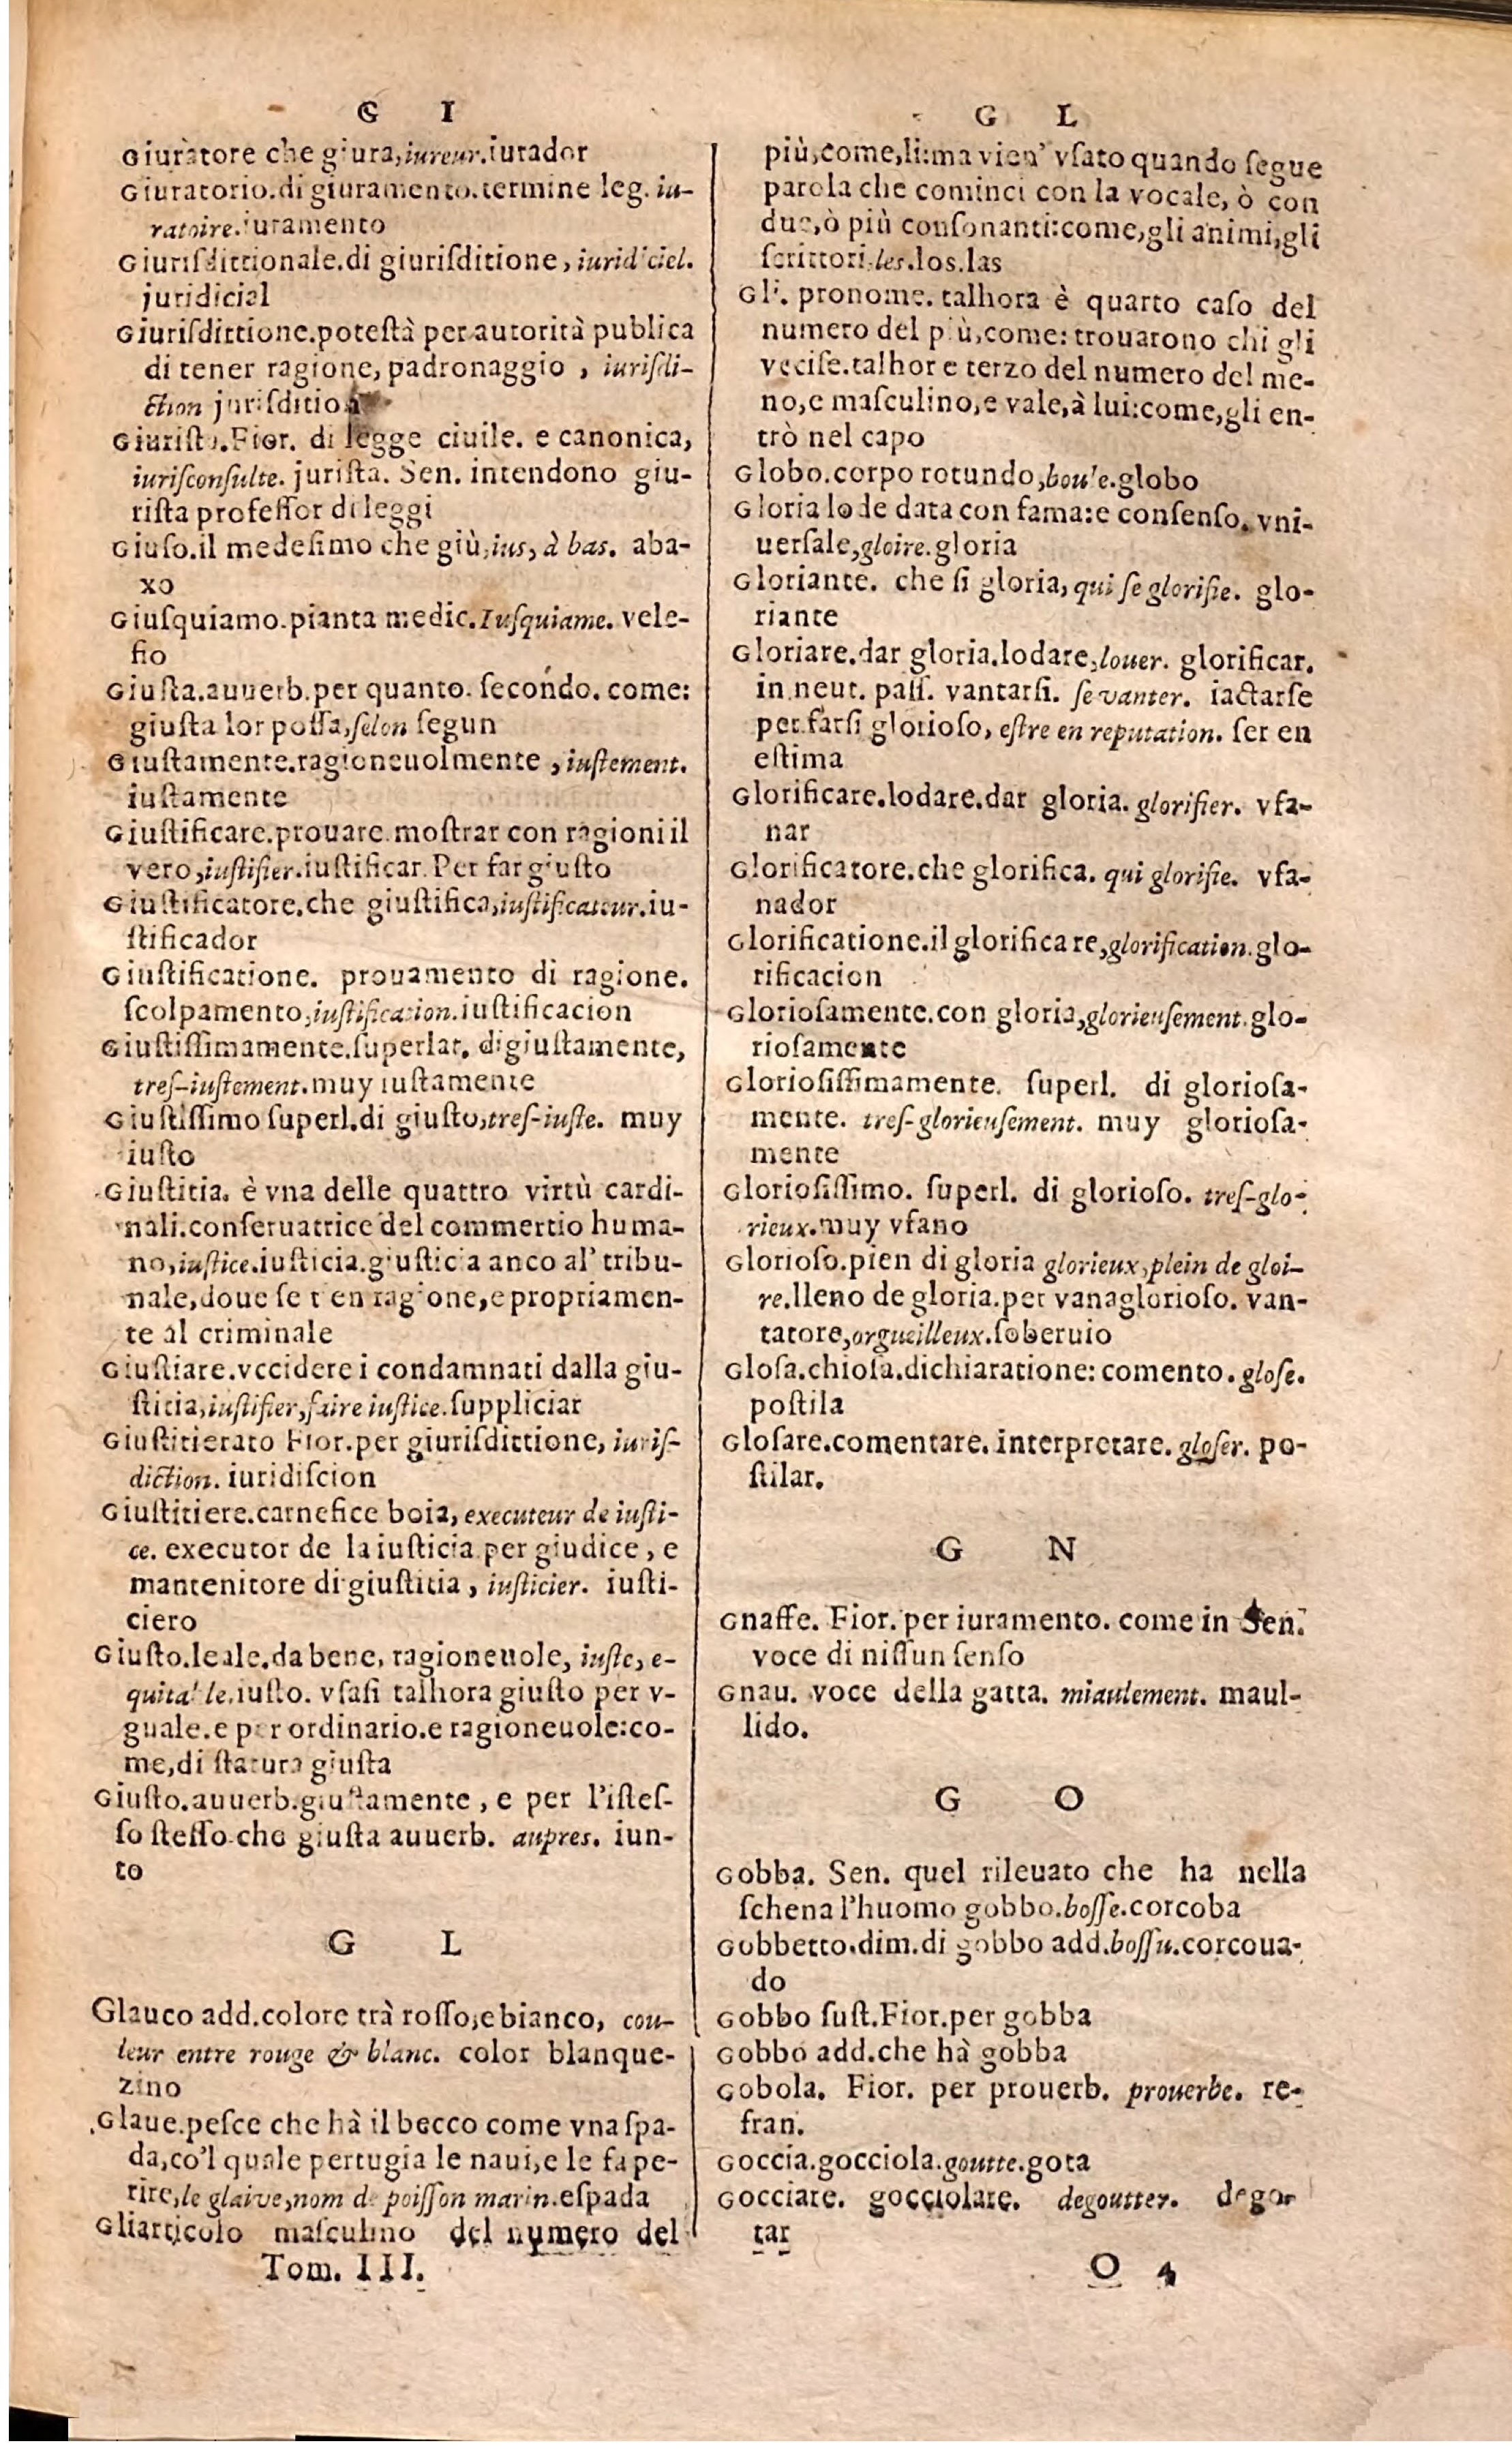 G I
Giuratore che giura,iureur.iurador
Giuratorio.di giuramento.termine leg. iu-
ratoire.iuramento
Giurisdittionale.di giuriſditione, iuridiciel.
juridicial
Giuriſdittione.poteſtà per autorità publica
di tener ragione, padronaggio , iuriſdi-
ction juriſdition
Giuriſta.Fior. di legge ciuile. e canonica,
iuriſconſulte. juriſta. Sen. intendono giu-
riſta profeſſor di leggi
Giuſo.il medeſimo che giù,ius, à bas. aba-
xo
Giuſquiamo.pianta medic.Iuſquiame. vele-
ño
Giuſta.auuerb.per quanto. ſecondo. come:
giuſta lor poſſa,ſelon ſegun
Giuſtamente.ragioneuolmente ,iuſtement.
iuſtamente
Giuſtificare.prouare.moſtrar con ragioni il
vero,iuſtifier.iuſtificar.Per far giuſto
Giuſtificatore.che giuſtifica,iuſtificateur.iu-
ſtificador
Giuſtificatione. prouamento di ragione.
ſcolpamento,iuſtification.iuſtificacion
Giuſtiſſimamente.ſuperlat. di giuſtamente,
treſ-iuſtement.muy iuſtamente
Giuſtiſſimo ſuperl.di giuſto,treſ-iuſte. muy
iuſto
Giuſtitia. è vna delle quattro virtù cardi-
nali.conſeruatrice del commertio huma-
no,iuſtice.iuſticia.giuſticia anco al' tribu-
nale,doue ſe tien ragione,e propriamen-
te al criminale
Giuſtiare.vccidere i condamnati dalla giu-
ſtitia,iuſtifier,faire iuſtice.ſuppliciar
Giuſtitierato Fior.per giuriſdittione, iuriſ-
diction. iuridiſcion
Giuſtitiere.carnefice boia, executeur de iuſti-
ce. executor de la iuſticia.per giudice , e
mantenitore di giuſtitia , iuſticier. iuſti-
ciero
Giuſto.leale.da bene, ragioneuole, iuſte, e-
quitable.iuſto. vſaſi talhora giuſto per v-
guale.e per ordinario.e ragioneuole:co-
me,di ſtatura giuſta
Giuſto.auuerb.giuſtamente , e per l'iſteſ-
ſo ſteſſo che giuſta auuerb. aupres. iun-
to
G L
Glauco add.colore trà roſſo,e bianco, cou-
leur entre rouge & blanc. color blanque-
zino
Glaue.peſce che hà il becco come vna ſpa-
da,co'l quale pertugia le naui,e le fa pe-
rire,le glaive,nom de poiſſon marin.eſpada
Gli articolo maſculino del numero del
Tom. III.
G L
più,come,li:ma vien' vſato quando ſegue
parola che cominci con la vocale, ò con
due,ò più conſonanti:come,gli animi,gli
ſcrittori.les.los.las
Gli. pronome. talhora è quarto caſo del
numero del più,come: trouarono chi gli
vcciſe.talhor e terzo del numero del me-
no,e maſculino,e vale,à lui:come,gli en-
trò nel capo
Globo.corpo rotundo,boule.globo
Gloria lode data con fama:e conſenſo. vni-
uerſale,gloire.gloria
Gloriante. che ſi gloria, qui ſe glorifie. glo-
riante
Gloriare.dar gloria.lodare,louer. glorificar.
in neut. paſſ. vantarſi. ſe vanter. iactarſe
per farſi glorioſo, eſtre en reputation. ſer en
eſtima
Glorificare.lodare.dar gloria. glorifier. vfa-
nar
Glorificatore.che glorifica. qui glorifie. vfa-
nador
Glorificatione.il glorificare,glorification.glo-
rificacion
Glorioſamente.con gloria,glorieuſement.glo-
rioſamente
Glorioſiſſimamente. ſuperl. di glorioſa-
mente. treſ-glorieuſement. muy glorioſa-
mente
Glorioſiſſimo. ſuperl. di glorioſo. treſ-glo-
rieux.muy vfano
Glorioſo.pien di gloria glorieux,plein de gloi-
re.lleno de gloria.per vanaglorioſo. van-
tatore,orgueilleux.ſoberuio
Gloſa.chioſa.dichiaratione: comento. gloſe.
poſtila
Gloſare.comentare. interpretare. gloſer. po-
ſtilar.
G N
Gnaffe. Fior. per iuramento. come in Sen.
voce di niſſun ſenſo
Gnau. voce della gatta. miaulement. maul-
lido.
G O
Gobba. Sen. quel rileuato che ha nella
ſchena l'huomo gobbo.boſſe.corcoba
Gobbetto.dim.di gobbo add.boſſu.corcoua-
do
Gobbo ſuſt.Fior.per gobba
Gobbo add.che hà gobba
Gobola. Fior. per prouerb. prouerbe. re-
fran.
Goccia.gocciola.goutte.gota
Gocciare. gocciolare. degoutter. degor
tar
O 4